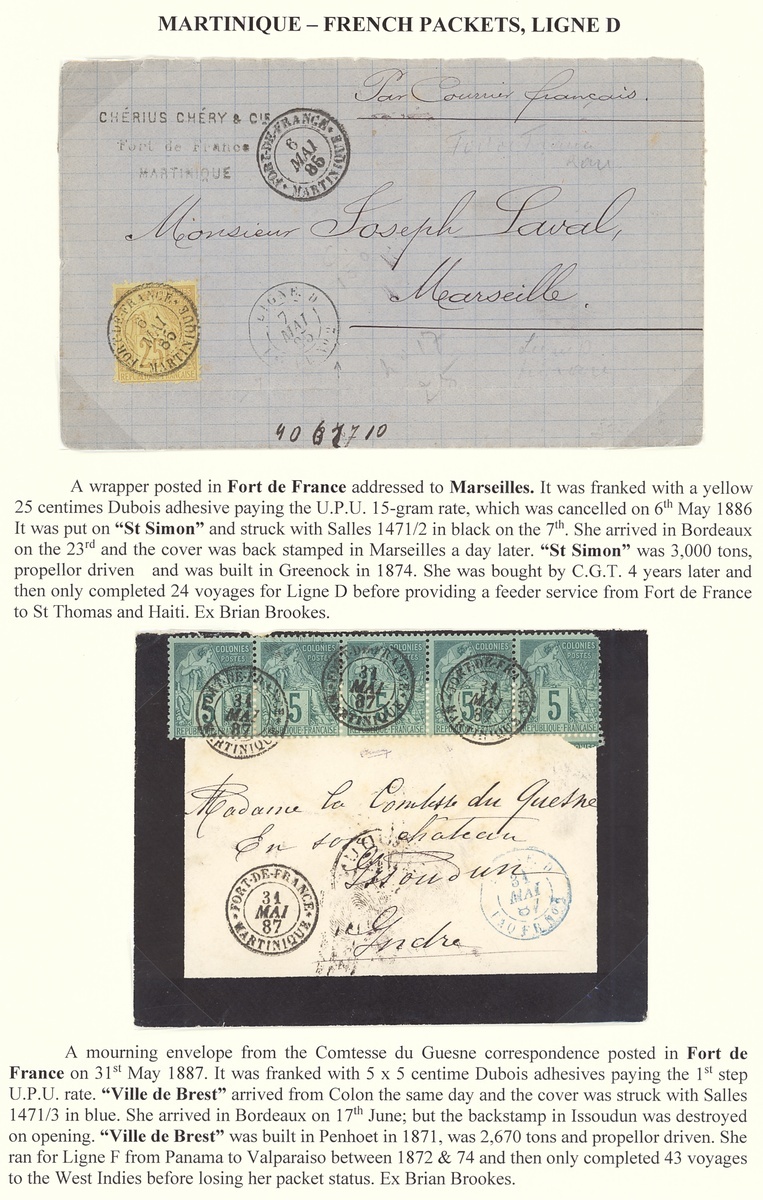 MARTINIQUE – FRENCH PACKETS, LIGNE D
Par Courrier français.
CHÉRIUS CHÉRY & CIE
Fort de France
MARTINIQUE
FORT-DE-FRANCE
6
MAI
86
MARTINIQUE
Monsieur Joseph Laval,
Marseille.
FORT-DE-FRANCE
6
MAI
86
MARTINIQUE
25
LIGNE D
7
MAI
40 61710
A wrapper posted in Fort de France addressed to Marseilles. It was franked with a yellow
25 centimes Dubois adhesive paying the U.P.U. 15-gram rate, which was cancelled on 6th May 1886
It was put on “St Simon” and struck with Salles 1471/2 in black on the 7th. She arrived in Bordeaux
on the 23rd and the cover was back stamped in Marseilles a day later. “St Simon” was 3,000 tons,
propellor driven and was built in Greenock in 1874. She was bought by C.G.T. 4 years later and
then only completed 24 voyages for Ligne D before providing a feeder service from Fort de France
to St Thomas and Haiti. Ex Brian Brookes.
COLONIES COLONIES COLONIES COLONIES
POSTES POSTES POSTES POSTES
31 MAI 87
31 MAI 87
31 MAI 87
5 5 5 5
REPUBLIQUE FRANÇAISE
MARTINIQUE MARTINIQUE MARTINIQUE
Madame la Comtesse du Quesne
En son château
Issoudun
Indre
FORT-DE-FRANCE
31
MAI
87
MARTINIQUE
31
MAI
87
PAQ FR No 3
A mourning envelope from the Comtesse du Guesne correspondence posted in Fort de
France on 31st May 1887. It was franked with 5 x 5 centime Dubois adhesives paying the 1st step
U.P.U. rate. “Ville de Brest” arrived from Colon the same day and the cover was struck with Salles
1471/3 in blue. She arrived in Bordeaux on 17th June; but the backstamp in Issoudun was destroyed
on opening. “Ville de Brest” was built in Penhoet in 1871, was 2,670 tons and propellor driven. She
ran for Ligne F from Panama to Valparaiso between 1872 & 74 and then only completed 43 voyages
to the West Indies before losing her packet status. Ex Brian Brookes.